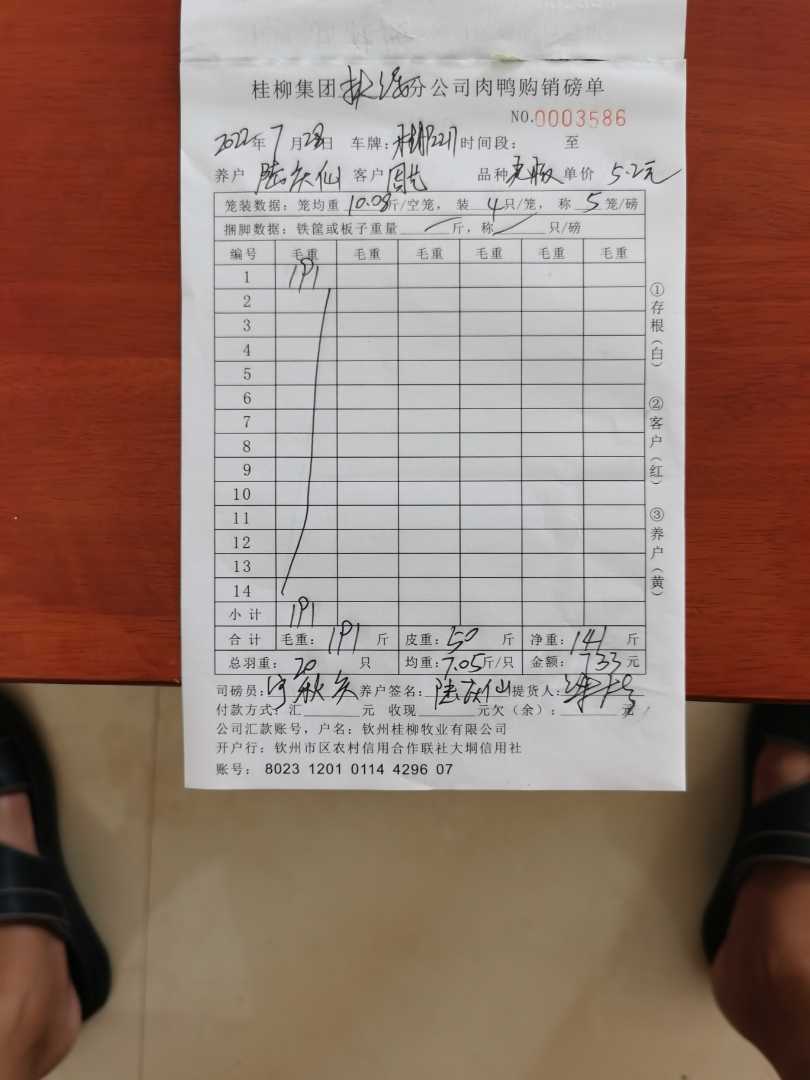 桂柳集团 分公司肉鸭购销磅单
NO.0003586
2022年7月28日 车牌: 时间段: 至
养户 陆庆仙 客户 品种 单价 5.2元
笼装数据:笼均重 10.08斤/空笼, 装 4只/笼, 称 5笼/磅
捆脚数据:铁筐或板子重量 斤,称 只/磅
编号 毛重 毛重 毛重 毛重 毛重 毛重
1 191
2
3
4
5
6
7
8
9
10
11
12
13
14
小计 191
合计 毛重: 191 斤 皮重: 50 斤 净重: 141 斤
总羽重: 20 只 均重: 7.05斤/只 金额: 733元
司磅员: 养户签名: 陆庆仙 提货人:
付款方式: 汇 元 收现 元欠(余): 元
公司汇款账号,户名:钦州桂柳牧业有限公司
开户行:钦州市区农村信用合作联社大垌信用社
账号: 8023 1201 0114 4296 07
①存根(白)
②客户(红)
③养户(黄)